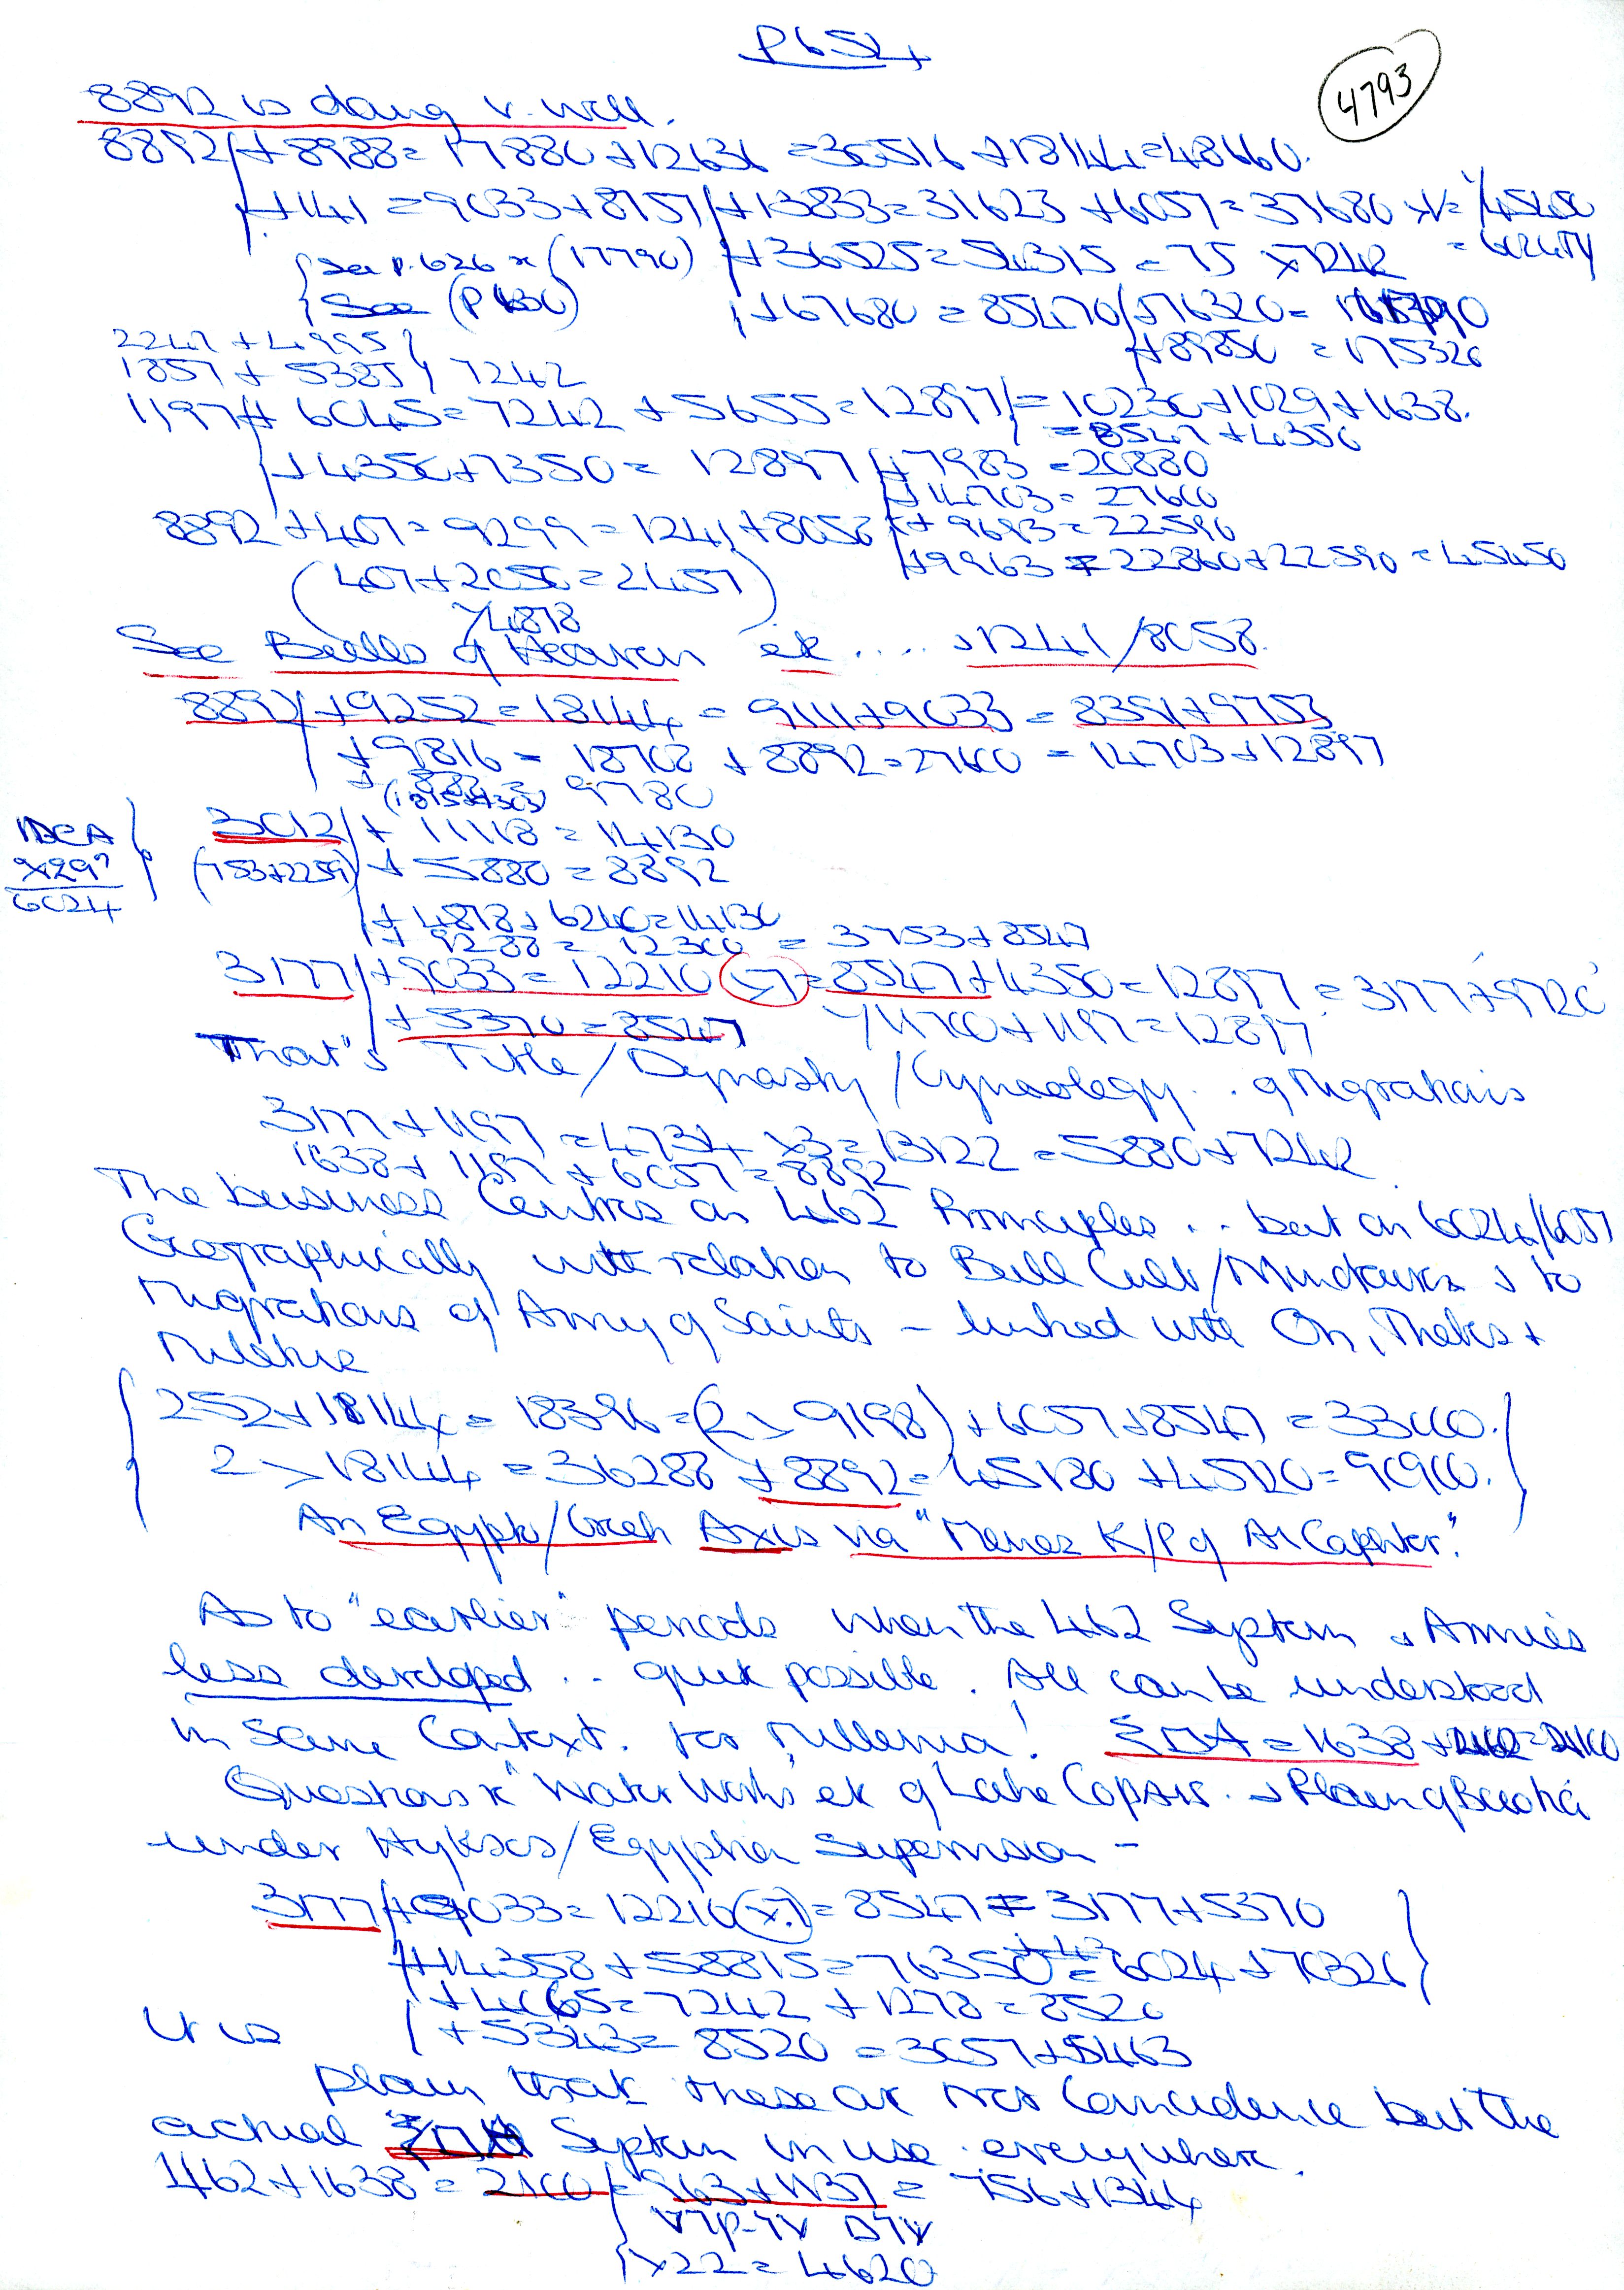 P654
4793
8892 is doing v. well.
8892 / + 8988 = 17880 + 12636 = 30516 + 18144 = 48660.
+ 141 = 9033 + 8757 / + 13833 = 31623 + 6057 = 37680
{ See p. 626 x (17790) / + 36525 = 54315 = 75 x 7242
{ See (P 630) / + 67680 = 85470 / + 76320 =
+ 89856 = 175326
2247 + 4995 }
1857 + 5385 } 7242
1197 / + 6045 = 7242 + 5655 = 12897 / = 10230 + 1029 + 1638.
= 8547 + 4350
/ + 4350 + 7350 = 12897 / + 7983 = 20880
+ 14703 = 27600
8892 + 407 = 9299 = 1241 + 8058 / + 9693 = 22590
/ + 9963 = 22860 + 22590 = 45450
(407 + 2050 = 2457)
/4878
See Bulls of Heaven etc .... & 1241/8058.
8892 / + 9252 = 18144 = 9111 + 9033 = 8391 + 9753
+ 9816 = 18708 + 8892 = 27600 = 14703 + 12897
+ 888 = 9780
3012 / + 11118 = 14130
IDEA
x 2 9?
6024
(753 + 2259) + 5880 = 8892
+ 4878 + 6240 = 14130
+ 9288 = 12300 = 3753 + 8547
3177 / + 9033 = 12210 (x.7) = 8547 + 4350 = 12897 = 3177 + 9720
+ 5370 = 8547 / 11700 + 1197 = 12897
That's Title / Dynasty / Gyneology .. of Migrations
3177 + 1197 = 4734 x 3 = 13122 = 5880 + 7242
1638 + 1197 + 6057 = 8892
The business Centres on 462 Principles .. but on 6024/6057
Geographically with relation to Bull Cult/Minotaurs & to
Migrations of Army of Saints – linked with On, Thebes +
{ 252 + 18144 = 18396 = (2 > 9198) + 6057 + 8547 = 33000. }
{ 2 > 18144 = 36288 + 8892 = 45180 + 45720 = 90900. }
An Egypt/Greek Axis via "Menes K/P of Ai Caphtor".
As to "earlier" periods when the 462 System & Armies
less developed .. quite possible. All can be understood
in Same Context. for Millenia! ΣΠΑ = 1638 + 462 = 2100
Questions x "Water Works etc of Lake Copais. & Plain of Beotia
under Hyksos/Egyptian Supervision –
3177 / + 9033 = 12210 (x.7) = 8547 = 3177 + 5370
+ 14358 + 58815 = 76350 = 6024 + 70326
+ 4065 = 7242 + 1278 = 8520
It is / + 5343 = 8520 = 3057 + 5463
plain that these are not Coincidence but the
actual System in use everywhere.
462 + 1638 = 2100 / = 963 + 1137 = 756 + 1344
x 22 = 4620